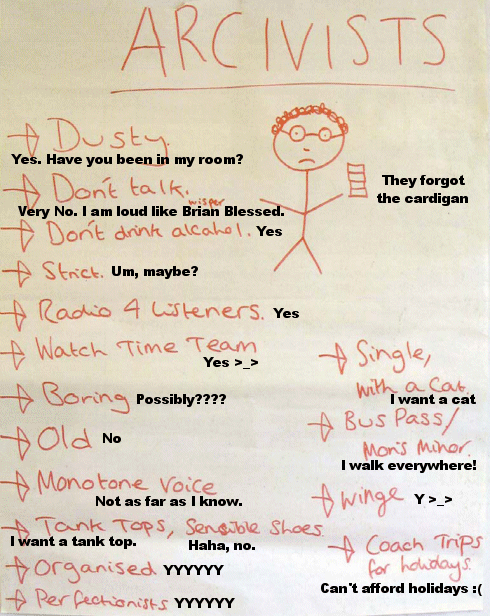 ARCIVISTS
Dusty.
Yes. Have you been in my room?
Don't talk.
wisper
Very No. I am loud like Brian Blessed.
They forgot
the cardigan
Don't drink alcahol. Yes
Strict. Um, maybe?
Radio 4 Listeners. Yes
Watch Time Team
Yes >_>
Boring Possibly????
Old No
Monotone Voice
Not as far as I know.
Tank Tops, Sensible Shoes.
I want a tank top. Haha, no.
Organised YYYYYY
Perfectionists YYYYYY
Single,
with a Cat
I want a cat
Bus Pass/
Morris Minor.
I walk everywhere!
Winge Y >_>
Coach Trips
for holidays.
Can't afford holidays :(